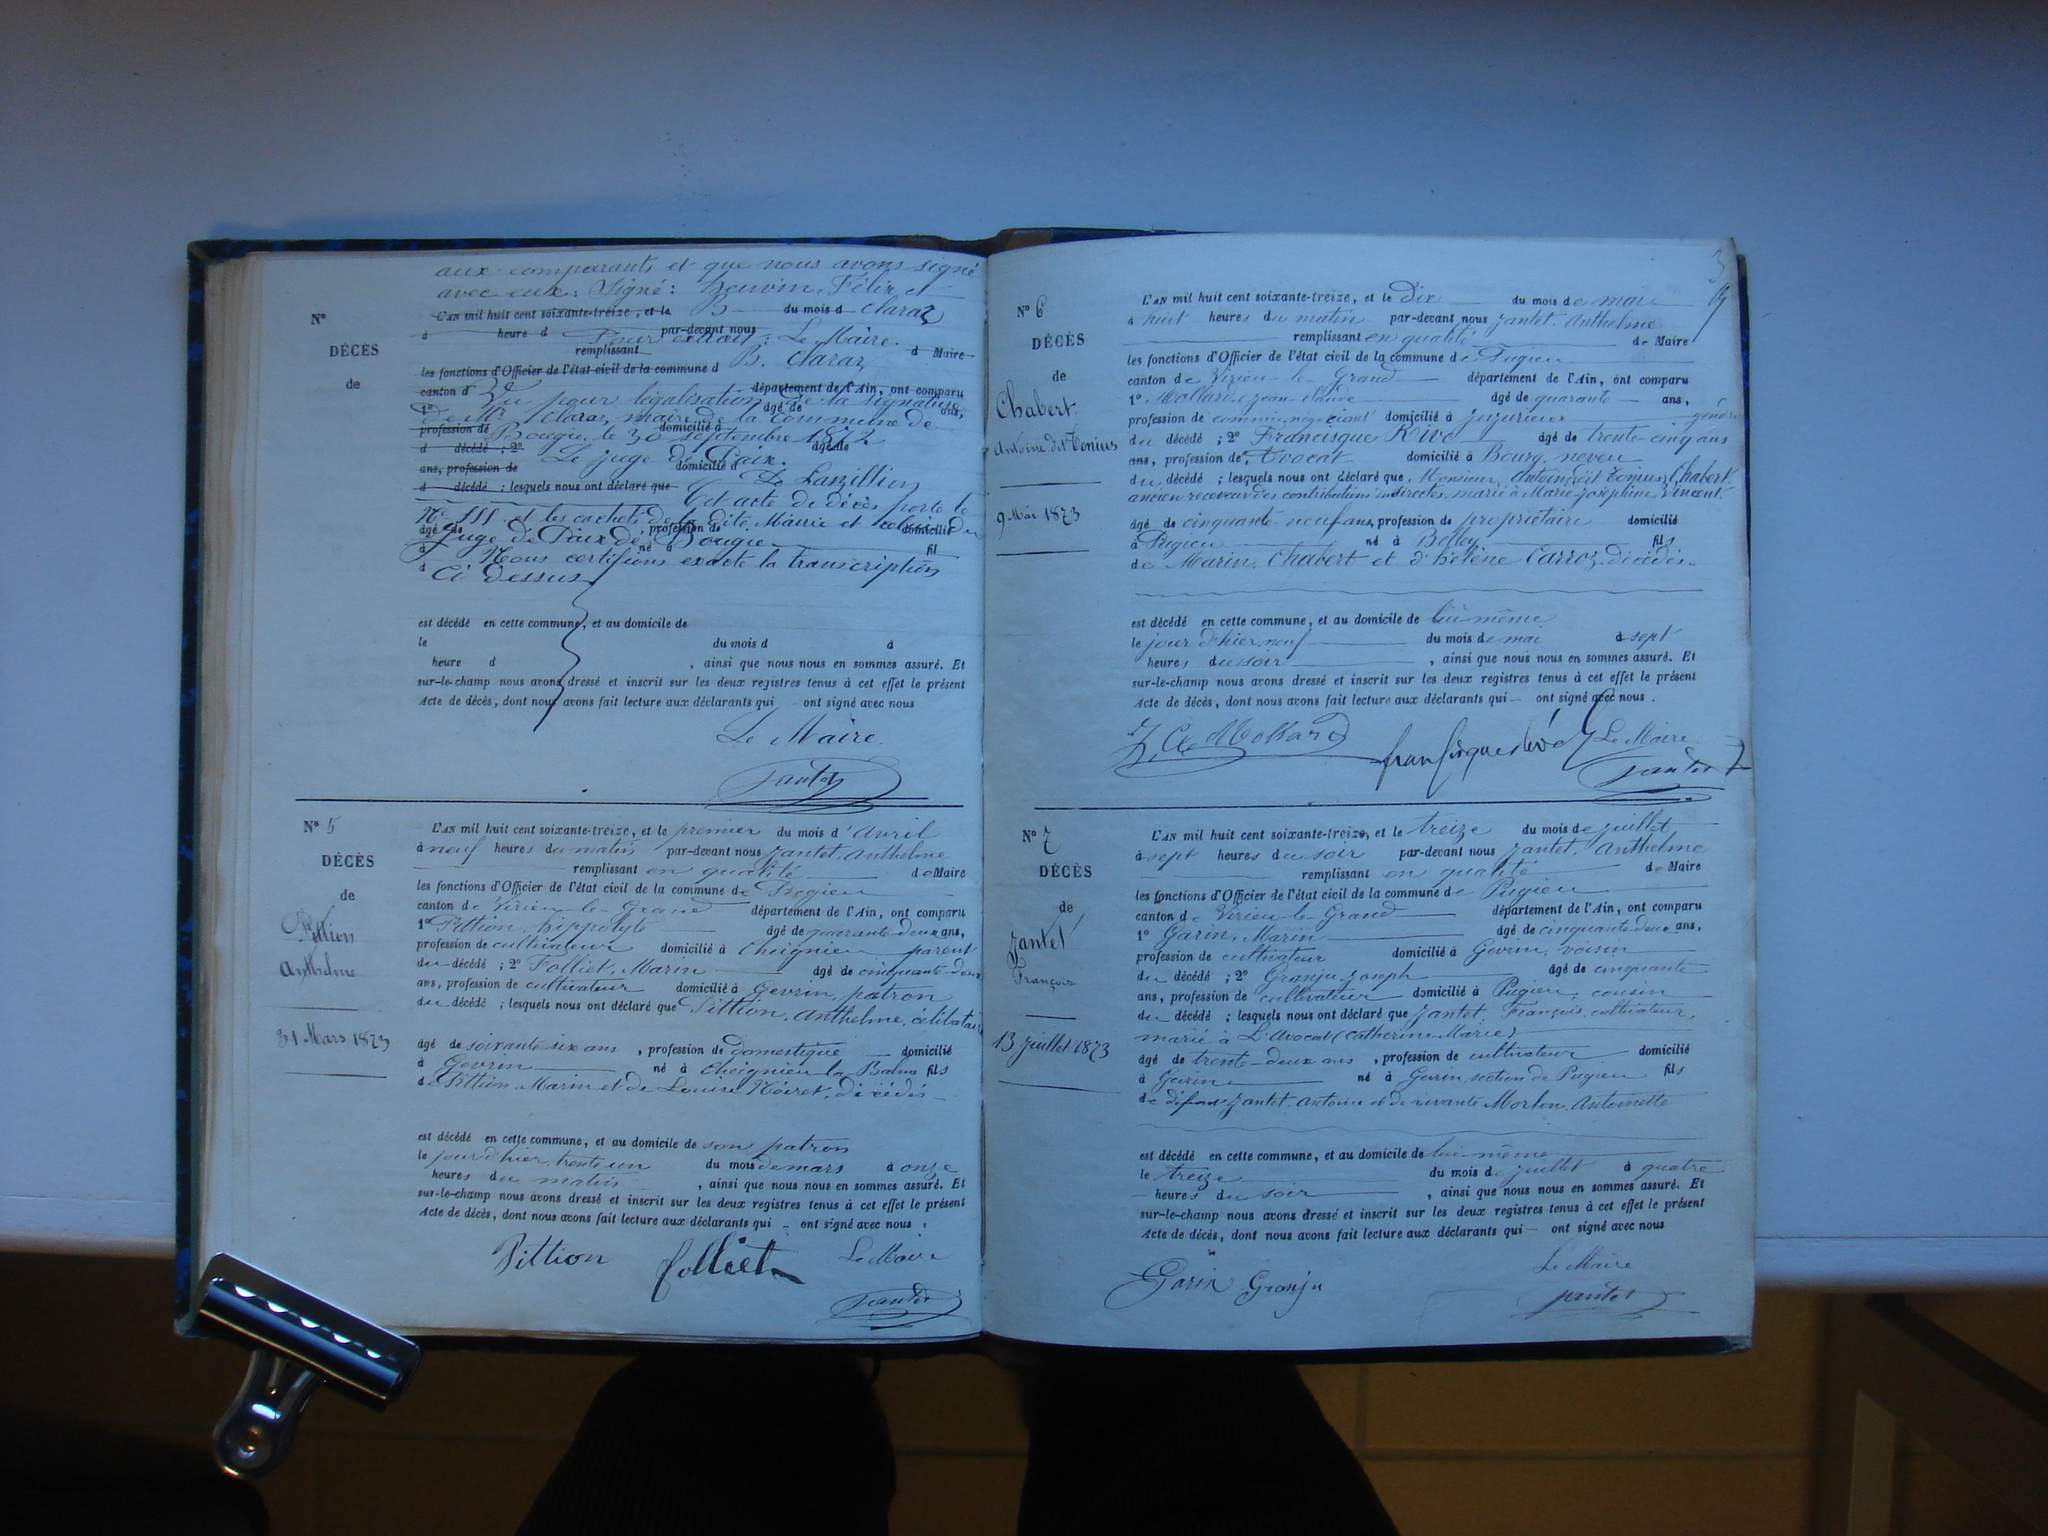 aux comparants et que nous avons signé
avec eux. Signé: Félix et
N°
L'AN mil huit cent soixante-treize, et le B du mois d Claraz
à heure d par-devant nous
Pour extrait: Le Maire
DÉCÈS
remplissant d Maire
B. Claraz
les fonctions d'Officier de l'état civil de la commune d
de
canton d département de l'Ain, ont comparu
Vu pour légalisation de la signature
1° âgé de ans,
de Mr Claraz, maire de la commune de
profession de domicilié à
Bougie, le 30 septembre 1872
d décédé ; 2° âgé de
Le juge de Paix.
ans, profession de domicilié à
d décédé ; lesquels nous ont déclaré que
Cet acte de décès porte le
N° 111 et les cachets de la dite Mairie et celui du
âgé de , profession de domicilié
Juge de Paix de Bougie
à né à fil
d Nous certifions exacte la transcription
Ci dessus
est décédé en cette commune, et au domicile de
le du mois d à
heure d , ainsi que nous nous en sommes assuré. Et
sur-le-champ nous avons dressé et inscrit sur les deux registres tenus à cet effet le présent
Acte de décès, dont nous avons fait lecture aux déclarants qui ont signé avec nous
Le Maire
Jantet
N° 5
DÉCÈS
de
Pittion
Anthelme
31 Mars 1873
L'AN mil huit cent soixante-treize, et le premier du mois d'Avril
à neuf heures du matin par-devant nous Jantet, Anthelme
remplissant en qualité de Maire
les fonctions d'Officier de l'état civil de la commune de Pugieu
canton de Virieu-le-Grand département de l'Ain, ont comparu
1° Pittion, hippolyte âgé de quarante deux ans,
profession de cultivateur domicilié à Cheignieu parent
du décédé ; 2° Folliet, Marin âgé de cinquante-deux
ans, profession de cultivateur domicilié à Gevrin, patron
du décédé ; lesquels nous ont déclaré que Pittion, Anthelme, célibataire
âgé de soixante six ans , profession de domestique domicilié
à Gevrin né à Cheignieu la Balme fils
de Pittion Marin et de Louise Noiret, décédés
est décédé en cette commune, et au domicile de son patron
le jour d'hier, trente un du mois de mars à onze
heures du matin , ainsi que nous nous en sommes assuré. Et
sur-le-champ nous avons dressé et inscrit sur les deux registres tenus à cet effet le présent
Acte de décès, dont nous avons fait lecture aux déclarants qui ont signé avec nous.
Pittion folliet Le Maire
Jantet
3
N° 6
DÉCÈS
de
Chabert
Antoine dit Tonius
9 Mai 1873
L'AN mil huit cent soixante-treize, et le Dix du mois de mai
à huit heures du matin par-devant nous Jantet, Anthelme
remplissant en qualité de Maire
les fonctions d'Officier de l'état civil de la commune de Pugieu
canton de Virieu-le-Grand département de l'Ain, ont comparu
1° Mollard, jean claude âgé de quarante ans,
profession de commis, négociant domicilié à Jujurieux gendre
du décédé ; 2° Francisque Rive âgé de trente-cinq ans
ans, profession d' Avocat domicilié à Bourg, neveu
du décédé ; lesquels nous ont déclaré que Monsieur, Antoine dit Tonius, Chabert
ancien receveur des contributions indirectes, marié à Marie Joséphine Vincent
âgé de cinquante neuf ans, profession de propriétaire domicilié
à Pugieu né à Belley fils
de Marin, Chabert et d'hélène Carroz, décédés
est décédé en cette commune, et au domicile de lui-même
le jour d'hier, neuf du mois de mai à sept
heures du soir , ainsi que nous nous en sommes assuré. Et
sur-le-champ nous avons dressé et inscrit sur les deux registres tenus à cet effet le présent
Acte de décès, dont nous avons fait lecture aux déclarants qui ont signé avec nous.
J. Cde Mollard Le Maire
Jantet
N° 7
DÉCÈS
de
Jantet
François
13 Juillet 1873
L'AN mil huit cent soixante-treize, et le treize du mois de juillet
à sept heures du soir par-devant nous Jantet, Anthelme
remplissant en qualité de Maire
les fonctions d'Officier de l'état civil de la commune de Pugieu
canton de Virieu-le-Grand département de l'Ain, ont comparu
1° Garin, Marin âgé de cinquante deux ans,
profession de cultivateur domicilié à Gevrin, voisin
du décédé ; 2° Granju, Joseph âgé de cinquante
ans, profession de cultivateur domicilié à Pugieu, cousin
du décédé ; lesquels nous ont déclaré que Jantet, François, cultivateur,
marié à L'Avocat (Catherine Marie)
âgé de trente-deux ans , profession de cultivateur domicilié
à Gevrin né à Gevrin, section de Pugieu fils
de défunt Jantet Antoine et de vivante Antoinette
est décédé en cette commune, et au domicile de lui-même
le treize du mois de juillet à quatre
heures du soir , ainsi que nous nous en sommes assuré. Et
sur-le-champ nous avons dressé et inscrit sur les deux registres tenus à cet effet le présent
Acte de décès, dont nous avons fait lecture aux déclarants qui ont signé avec nous
Garin Granju Le Maire
Jantet